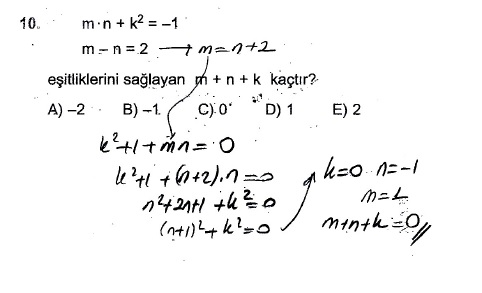 10. m·n + k² = –1
m – n = 2 → m = n+2
eşitliklerini sağlayan m + n + k kaçtır?
A) –2 B) –1 C) 0 D) 1 E) 2
k²+1+mn = 0
k²+1 + (n+2).n = 0
n²+2n+1 + k² = 0
(n+1)²+k² = 0
k=0 n=-1
n=1
m+n+k = 0